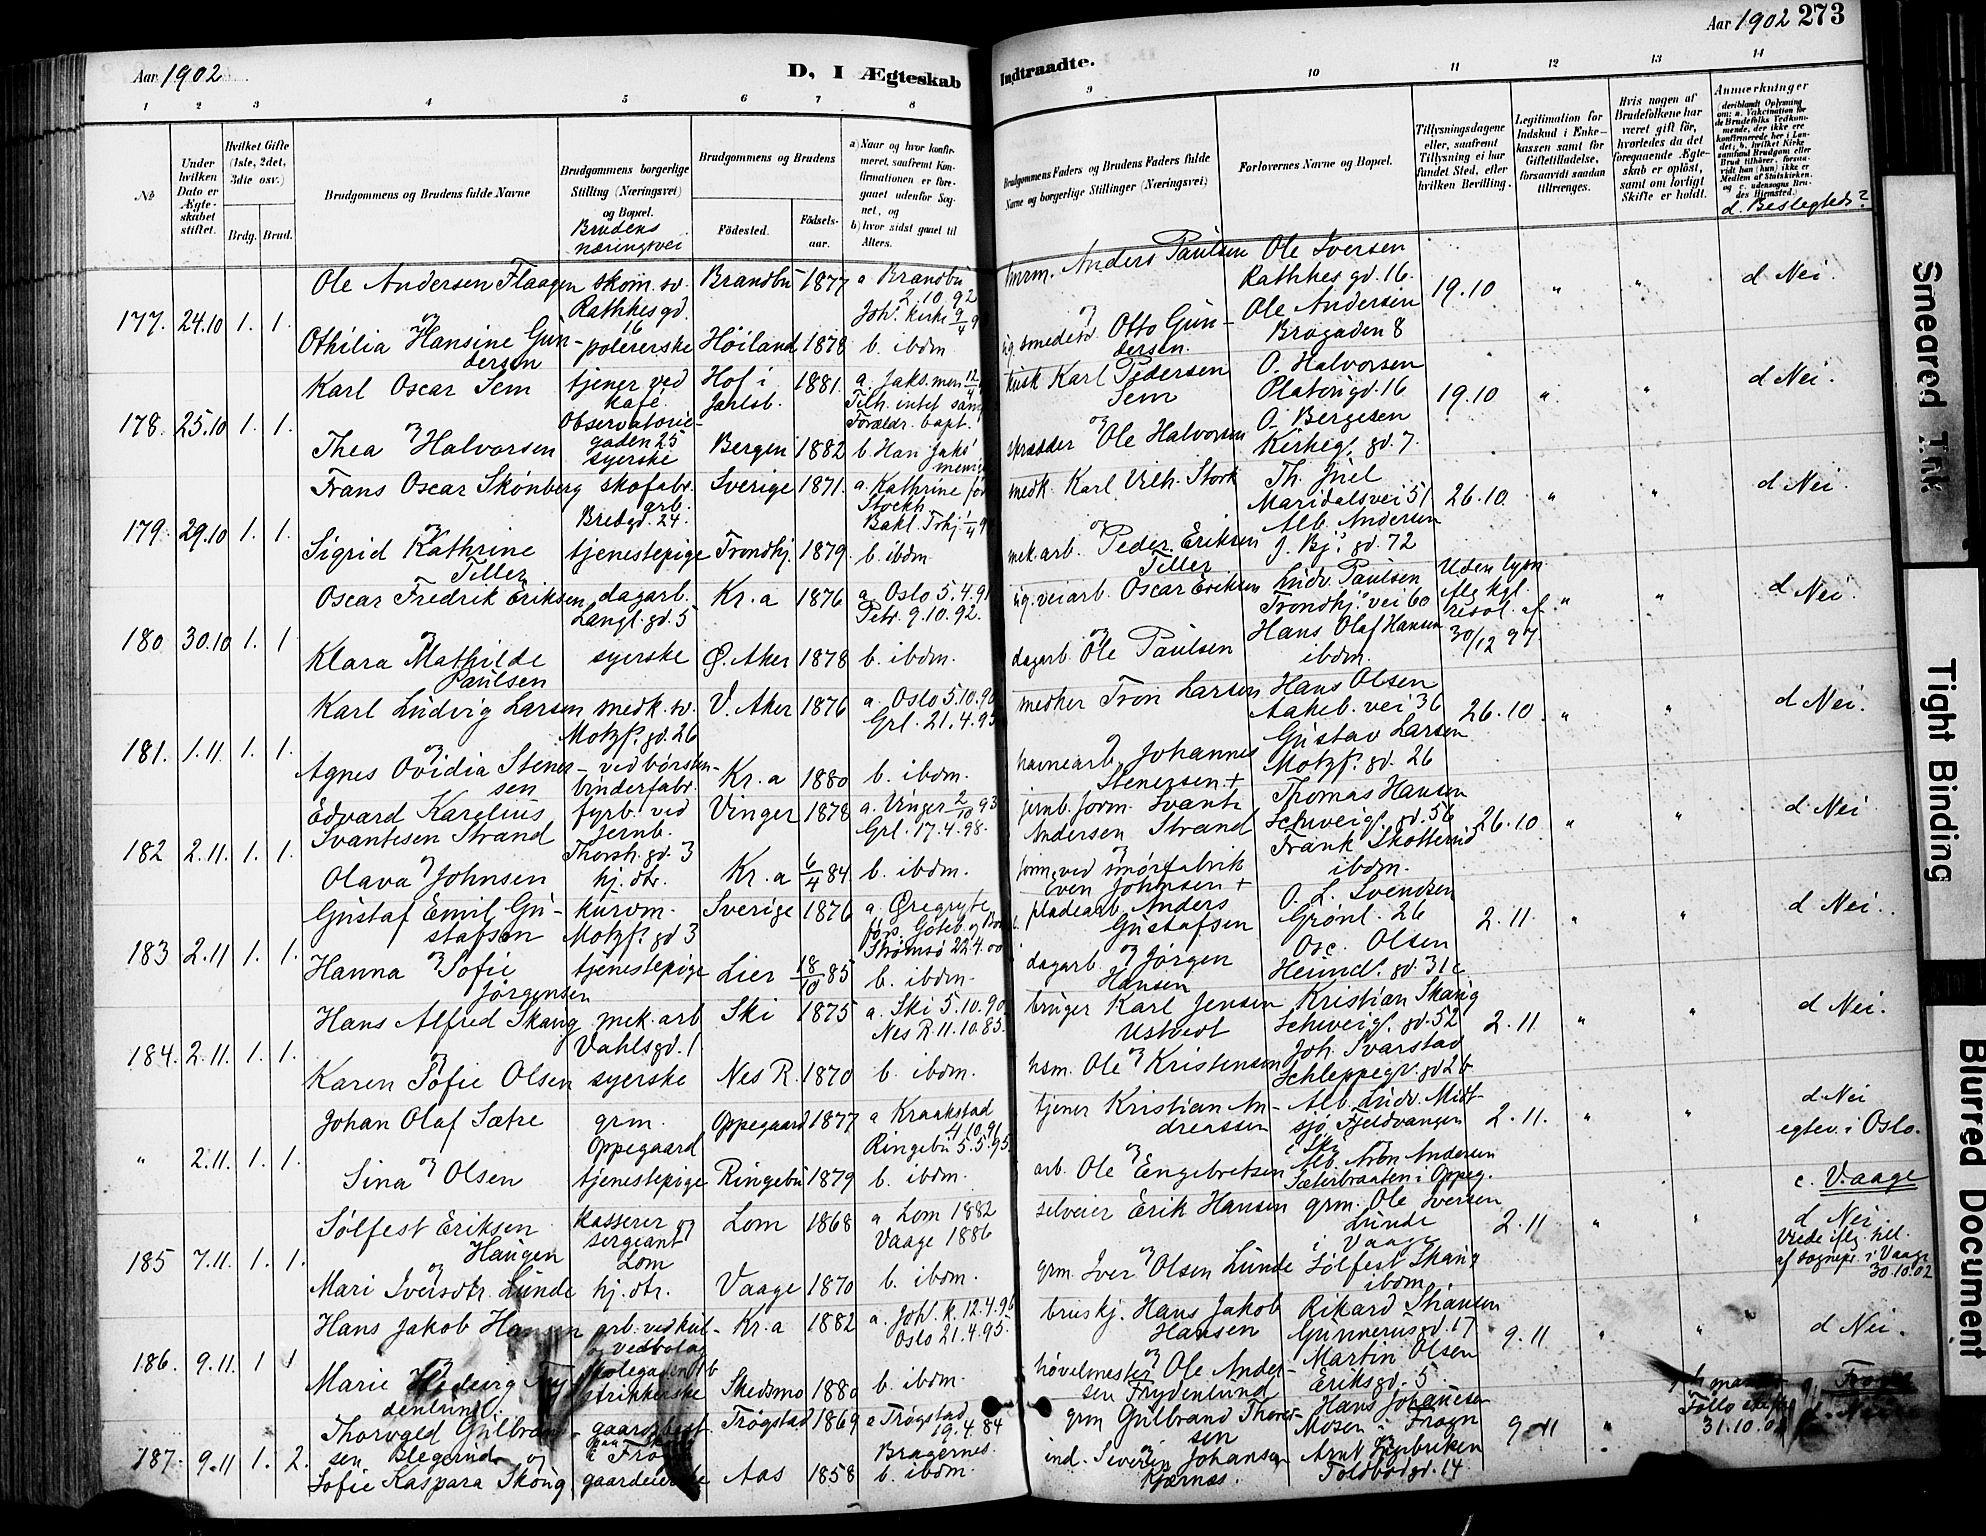 Aar 1902
D, I Ægteskab
1 2 3 4 5 6 7 8
No
Under hvilken Dato er Ægteskabet stiftet.
Hvilket Gifte (1ste, 2det, 3die osv.)
Brdg. Brud.
Brudgommens og Brudens fulde Navne
Brudgommens borgerlige Stilling (Næringsvei) og Bopæl.
Brudens næringsvei
Brudgommens og Brudens
Fødested. Fødselsaar.
a) Naar og hvor konfirmeret, saafremt Konfirmationen er foregaaet udenfor Sognet, og
b) hvor sidst gaaet til Alters.
Indtraadte.
Aar 1902 273
9 10 11 12 13 14
Brudgommens Faders og Brudens Faders fulde Navne og borgerlige Stillinger (Næringsvei)
Forlovernes Navne og Bopæl.
Tillysningsdagene eller, saafremt Tillysning ei har fundet Sted, efter hvilken Bevilling.
Legitimation for Indskud i Enkekassen samt for Giftetilladelse, forsaavidt saadan tiltrænges.
Hvis nogen af Brudefolkene har været gift før, hvorledes da det foregaaende Ægteskab er opløst, samt om lovligt Skifte er holdt.
Anmærkninger
d. Beslegtede?
177. 24.10 1. 1.
Ole Andersen Flaagen skom. sv. Brandbu 1877 a Brandbu
Rathkes gd. 16 2.10.92
og
Othilia Hansine Gundersen polererske Høiland 1878 b. ibdm
Anders Paulsen Ole Iversen
Rathkes gd. 16.
og Ole Andersen 19.10 " " d Nei.
smedesv. Otto Gundersen. Brogaden 8
178. 25.10 1. 1.
Karl Oscar Sem tjener ved kafé Hof i Jarlsb. 1881.
og Observatoriegaden 25
Thea Halvorsen syerske Bergen 1882
kusk Karl Pedersen Sem O. Halvorsen
Platousgd. 16 19.10 " " d Nei.
og O. Bergesen
skrædder Ole Halvorsen Kirkeg. gd. 7.
179. 29.10 1. 1.
Frans Oscar Skønberg skofabr. arb. Sverige 1871. a. Kathrine
Bredgd. 24. Stockh.
og
Sigrid Kathrine Tiller tjenestepige Trondhj. 1879. b. ibdm
Karl Vilh. Stork Th. Juel
Maridalsvei 51 26.10 " " d Nei.
og Alb. Andersen
mek. arb. Peder Eriksen Tiller gd. 72
180 30.10 1. 1
Oscar Fredrik Eriksen dagarb. Kr.a 1876 a. Oslo 5.4.91
Langl. gd. 5 Petr. 9.10.92.
og
Klara Mathilde Paulsen syerske Ø. Aker 1878 b. ibdm.
veiarb. Oscar Eriksen Ludv. Paulsen Uden lysn.
Trondhj. vei 60 iflg kgl. " " d Nei.
og Hans Olaf Hansen resol. af
dagarb. Ole Paulsen ibdm. 30/12 97
181. 1.11 1. 1.
Karl Ludvig Larsen smedk. sv. V. Aker 1876 a. Oslo 5.10.90
Motzf. gd. 26 Grl. 21.4.95
og
Agnes Ovidia Stenersen ved børstenbinderfabr. Kr.a 1880 b. ibdm.
Tron Larsen Hans Olsen
Aakeb. vei 36 26.10. " " d Nei.
og Gustav Larsen
havnearb. Johannes Stenersen + Motzf. gd. 26
182 2.11. 1. 1.
Edvard Karelius fyrb. ved jernb. Vinger 1878 a. Vinger 2/10 93
Svantesen Strand Thorsh. gd. 3 Grl. 17.4.98.
og
Olava Johnsen hj. dtr. Kr.a 6/4 84. b. ibdm.
jernb. form. Svante Thomas Hansen
Andersen Strand Schweig. gd. 56 26.10. " " d Nei
og Frank Skotterud
form. ved smørfabrik Even Johnsen + ibdm.
183 2.11 1. 1.
Gustaf Emil Gustafsen kurvm. Sverige 1876 a. Øregryte
Motzf. gd 3 Strømsø 22.4.00
og
Hanna Sofie Jørgensen tjenestepige Lier 18/10 85 b. ibdm.
pladearb. Anders Gustafsen O. L. Svendsen
Grønl. 26 2.11. " " d Nei.
og Osc. Olsen
dagarb. Jørgen Hansen Heimd. gd. 31c
184. 2.11. 1. 1.
Hans Alfred Skaug mek. arb Ski 1875 a. Ski 5.10.90
Vahlsgd. 1 Nes R. 11.10.85.
og
Karen Sofie Olsen syerske Nes R. 1870 b. ibdm.
bruger Karl Jensen Ustvedt Kristian Skaug
Schweig. gd. 52 2.11 " " d Nei.
og Joh. Svarstad
hsm. Ole Kristensen Schleppegr. gd 26
" 2.11. 1. 1.
Johan Olaf Sætre grm. Oppegaard 1877 a Kraakstad 4.10.91
Oppegaard Ringebu 5.5.95.
og
Sina Olsen tjenestepige Ringebu 1879 b. ibdm.
tjener Kristian Andreassen Alb. Ludv. Midtsjø, Fjeldvangen i Ski 2.11. " " d Nei
egtev. i Oslo.
og Alb. Aron Andersen
arb. Ole Engebretsen Sæterbraaten i Oppeg.
185 7.11. 1. 1.
Sølfest Eriksen Haugen kasserer og sergeant Lom 1868 a Lom 1882
Lom Vaage 1886
og
Mari Iversdtr. Lunde hj. dtr. Vaage 1870 b. ibdm.
selveier Erik Hansen grm. Ole Iversen Lunde i Vaage 2.11 " " c. Vaage
d Nei.
og af sognepr. i Vaage 30.10.02
grm. Iver Olsen Lunde Sølfest Skaug ibdm.
186. 9.11. 1 1
Hans Jakob Hansen arb. ved kul- og vedbolag Kr.a 1882 a. Joh. k. 12.4.96
Oslo 21.4.95.
og
Marie Hedevig Frydenlund strikkerske Skedsmo 1880 b. ibdm.
Hans Jakob Hansen Rikard Hansen
Gunnerusgd. 17 9.11 " " d Nei.
og Martin Olsen
høvelmester Ole Andersen Frydenlund Eriksgd. 5.
187. 9.11 1. 2.
Thorvald Gulbrandsen Blegerud og Trøgstad 1869 a Trøgstad 19.4.84
Bragernes.
Sofie Kaspara Skoug gaardeierske Aas 1858 b. ibdm
grm Gulbrand Thoresen Hans Johansen
Mosen i Frogn 9.11 "
og Arnt
Severin Johansen Kjærnæs. Toldbodgd. 14
Follo
31.10.02
Smeared Ink
Tight Binding
Blurred Document